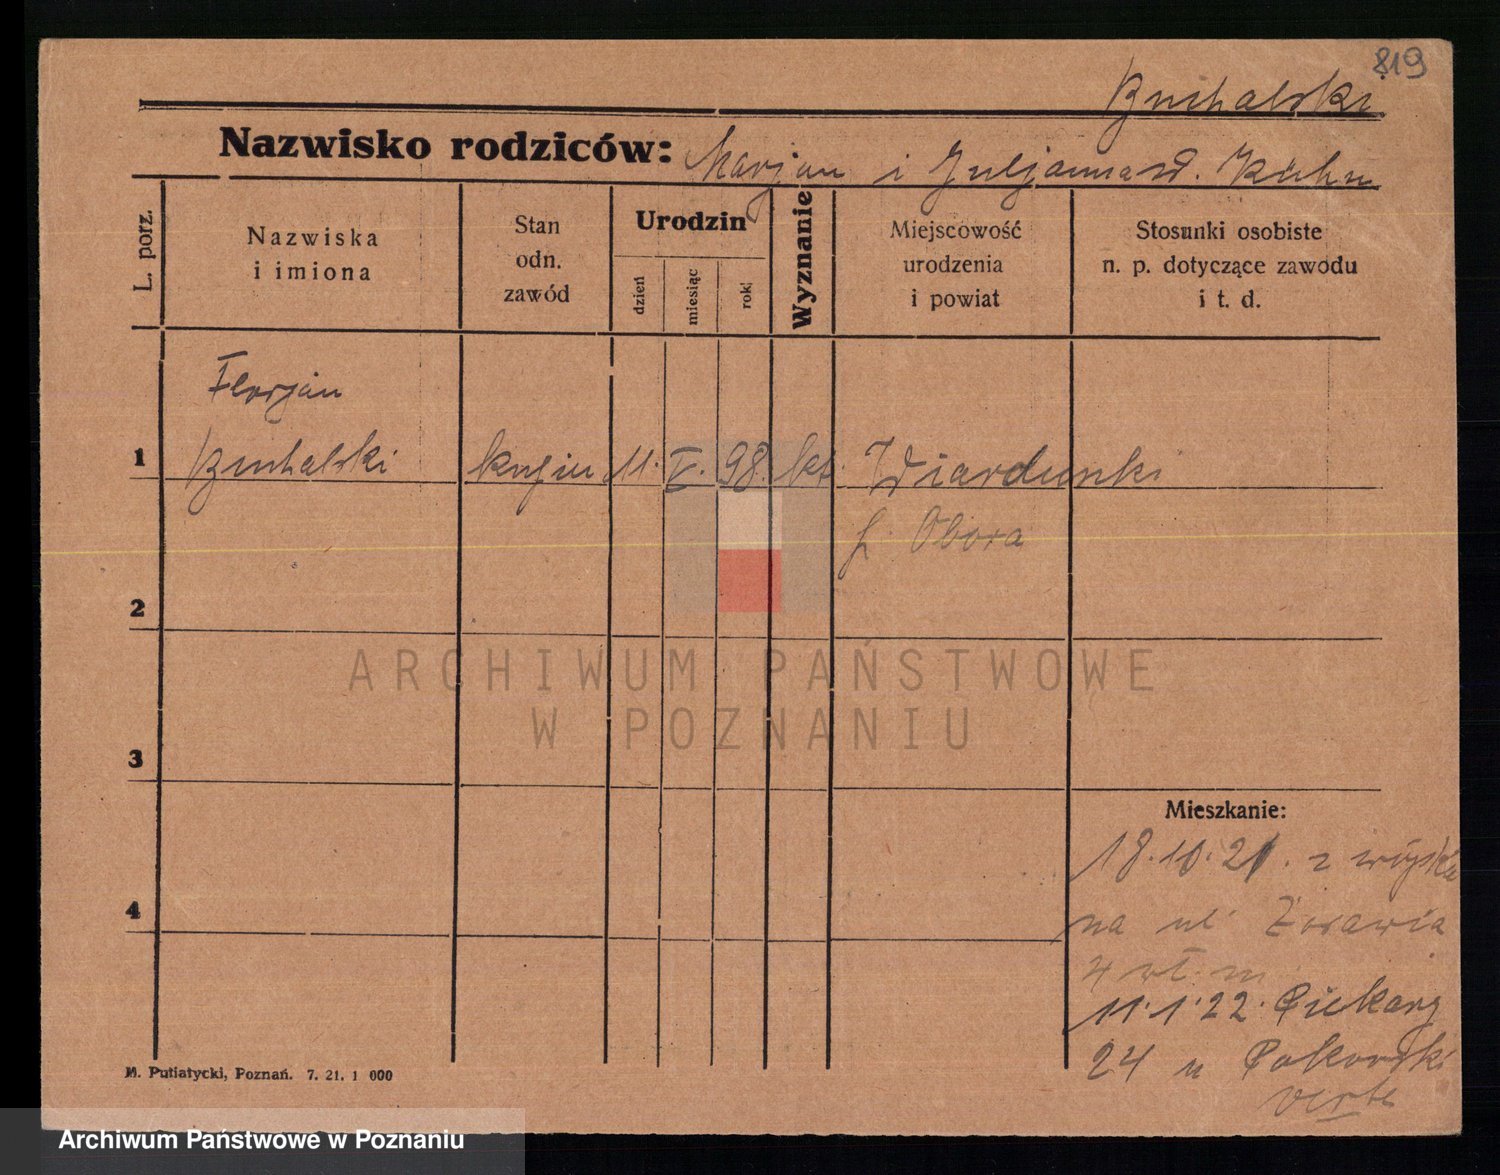 819
Buchalski
Nazwisko rodziców: Marjan i Juljanna d. Kühn
L. porz.
Nazwiska
i imiona
Stan
odn.
zawód
Urodzin
dzień
miesiąc
rok
Wyznanie
Miejscowość
urodzenia
i powiat
Stosunki osobiste
n. p. dotyczące zawodu
i t. d.
Florjan
1 Buchalski 11. V. 98. kt. Wiardunki
p. Obora
2
ARCHIWUM PAŃSTWOWE
W POZNANIU
3
Mieszkanie:
18.10.21. z wojska
4
na ul Żórawia
4 wł. m
11.1.22. Piekary
24 u Pokorski
verte
M. Putiatycki, Poznań. 7. 21. 1 000
Archiwum Państwowe w Poznaniu